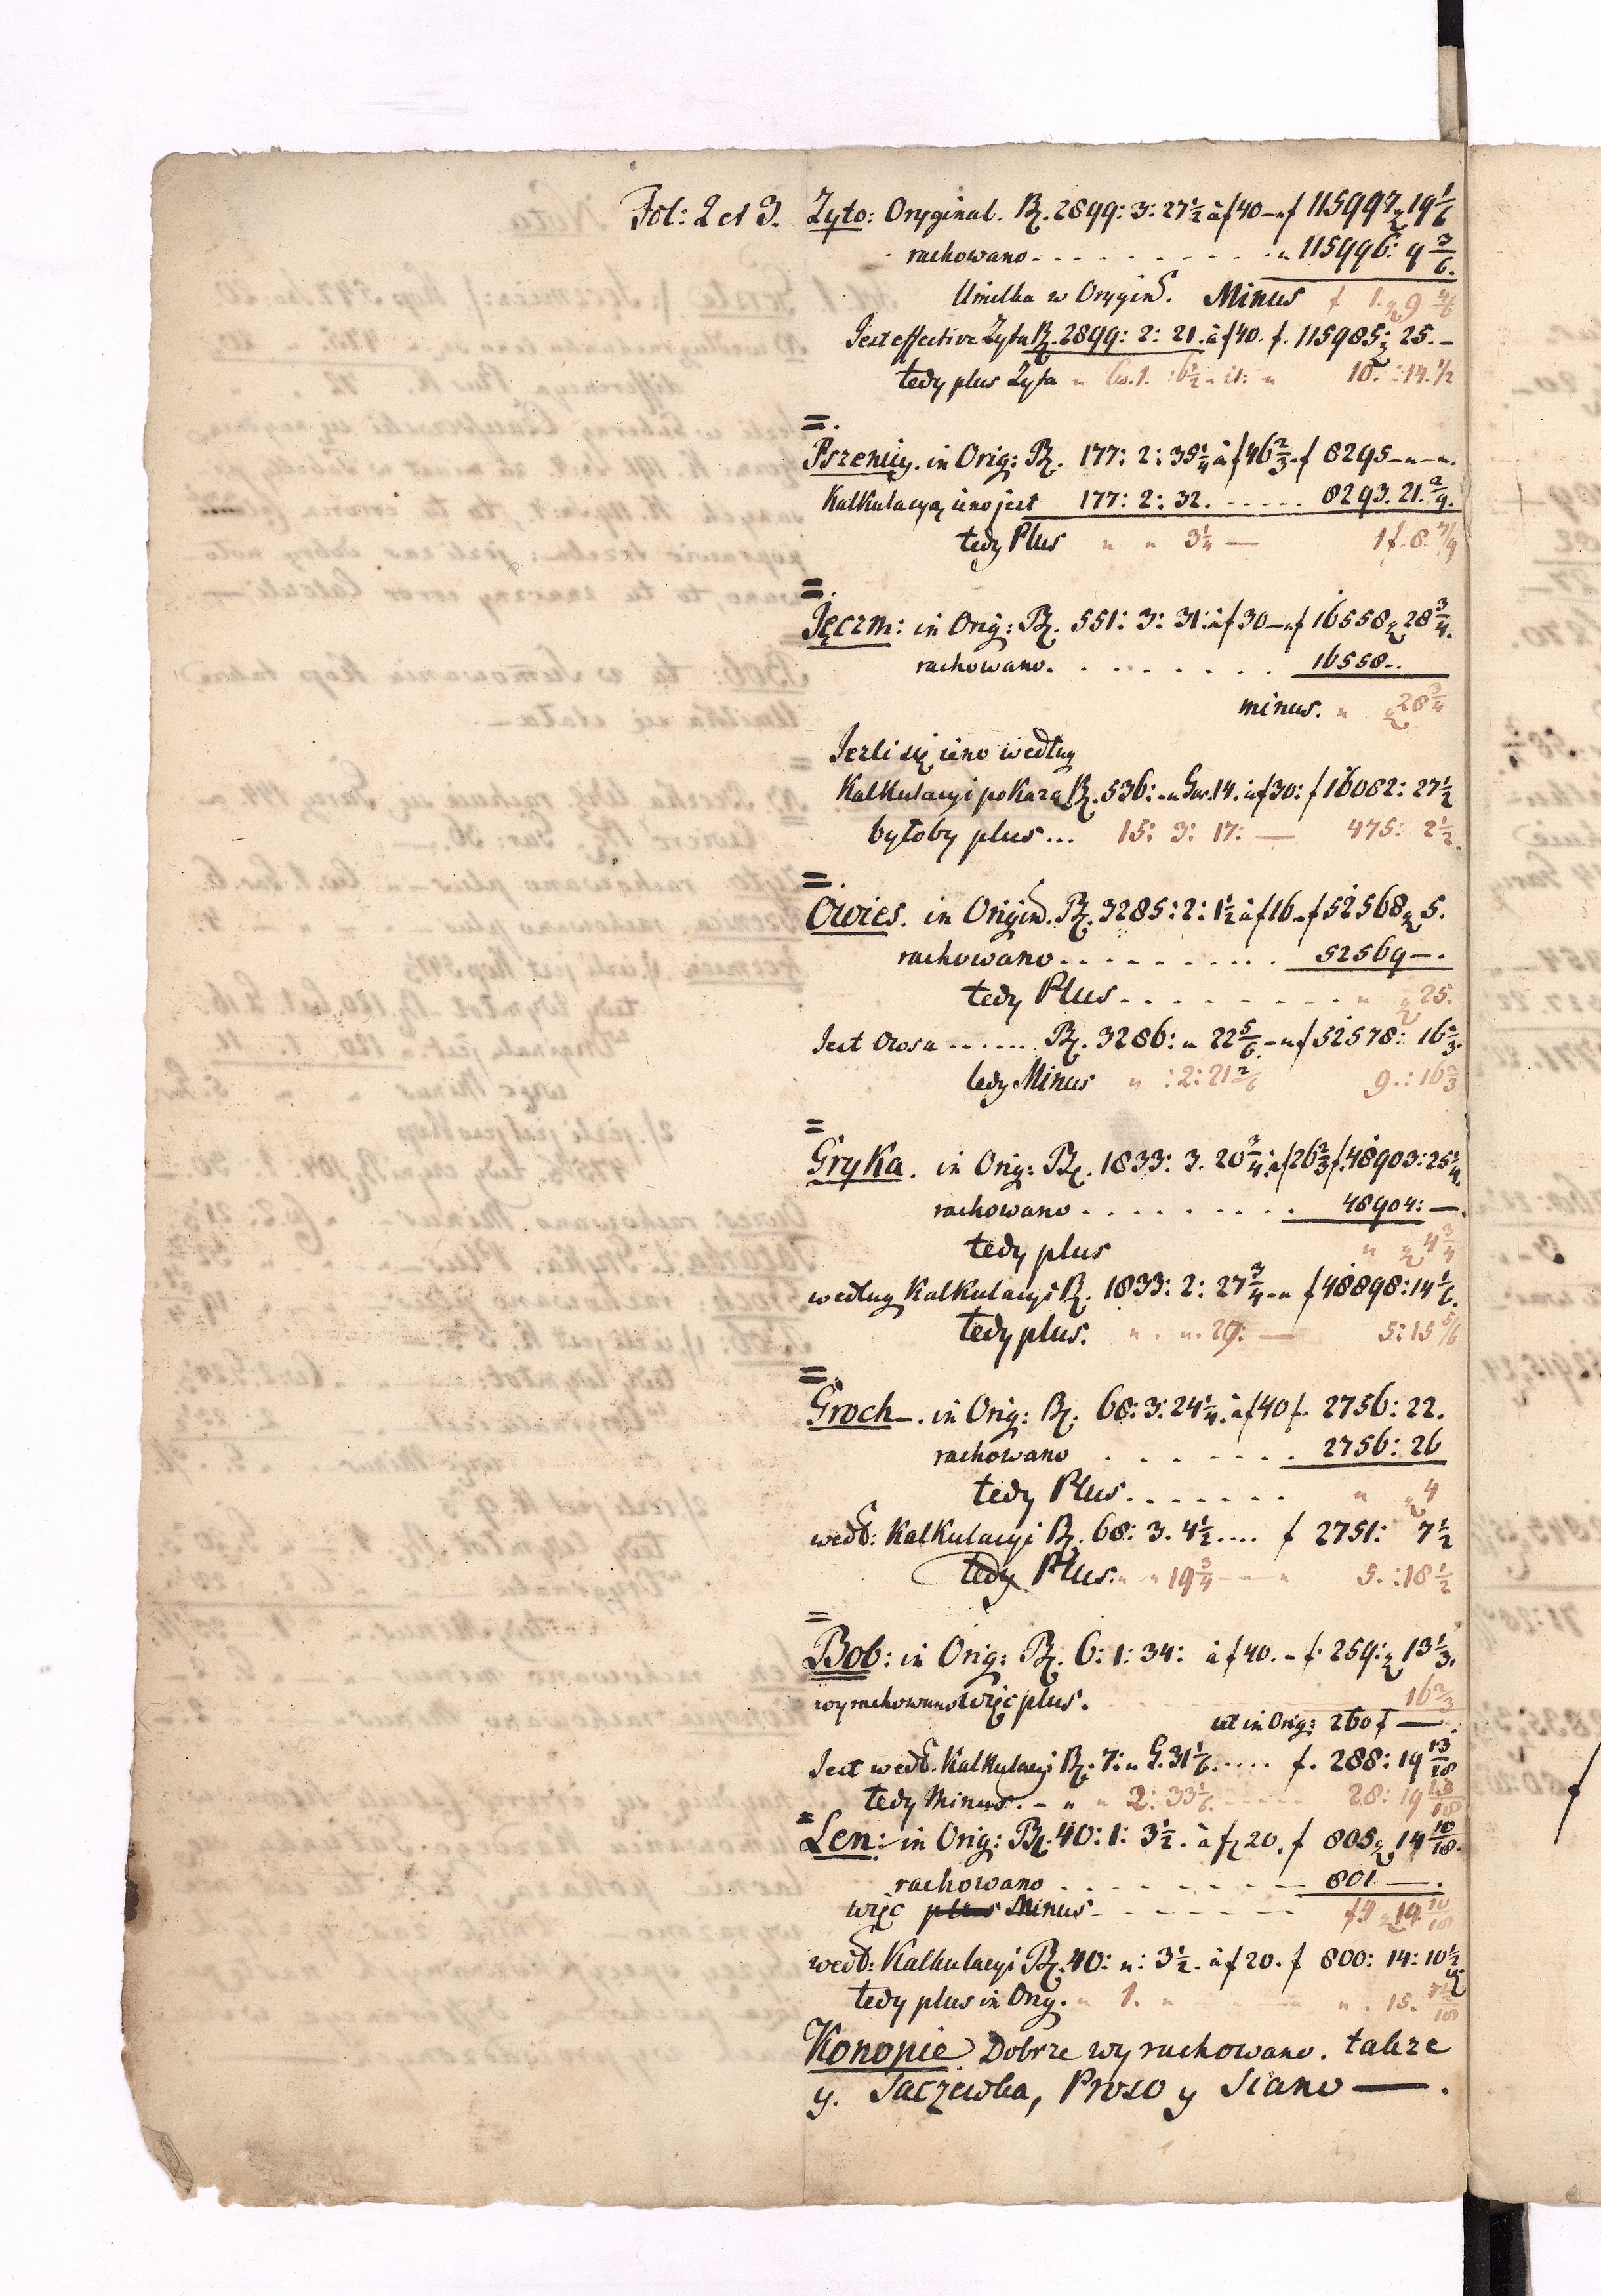 Fol: 2 et 3. Zyto: Oryginal. Rz. 2899: 3: 27½ à f 40 — „ f 115997 g 19 1/6
rachowano . . . . . . . . . . „ 115996: 9 3/6.
Umilka w Orygind. Minus f 1. g 9 4/6
Jest effective Zyta Rz. 2899: 2: 21. à f 40. f. 115985 g 25. —
tedy plus Zyta „ Cw. 1. : 6½ „ 10. : 14. ½
=.
Pszenicy. in Orig: Rz. 177: 2: 35¼ à f 46⅔ . f 8295 — „ — „.
Kalkulacyą ieno jest 177: 2: 32. . . . . . 8293. 21. 2/9.
tedy Plus „ „ 3¼ — 1 f. 8. 7/9
=.
Jęczm: in Orig: Rz. 551: 3: 31: à f 30 — „ f 16558 g 28¾.
rachowano. . . . . . . . 16558 — .
minus. „ g 28¾
Jezli się ieno według
Kalkulacyi pokaza Rz. 536: — „ Gar. 14. à f 30: f 16082: 27½
byłoby plus ... 15: 3: 17: — 475: 2½.
=.
Owies. in Origind. Rz. 3285: 2: 1½ à f 16 — f 52568 g 5.
rachowano . . . . . . . . . . 52569 — .
tedy Plus . . . . . . . . . „ g 25.
Jest Owsa . . . . . . Rz. 3286: „ 22 5/6. — „ f 52578: 16⅔.
tedy Minus „ : 2: 21 2/6 9. : 16⅔
=
Gryka. in Orig: Rz. 1833: 3. 20¾ à f 26⅔ f. 48903: 25¼.
rachowano . . . . . . . . . 48904: — .
tedy plus „ g 4¾
według Kalkulacyi Rz. 1833: 2: 27¾ — „ f 48898: 14 1/6.
tedy plus: „ . „. 29: — 5: 15 5/6
=.
Groch —. in Orig: Rz. 68: 3: 24¼. à f 40 f. 2756: 22.
rachowano . . . . . . . 2756: 26
tedy Plus . . . . . . . „ g 4
wedł: Kalkulacyi Rz. 68: 3. 4½ .... f 2751: 7½
tedy Plus: „ „ 19¾ — — „ 5. : 18½
=
Bob: in Orig: Rz. 6: 1: 34: à f 40. — f. 259: g 13⅓.
wyrachowano więc plus. 16⅔
ut in Orig: 260 f — .
Jest wedł. Kalkulacyi Rz. 7: „ G. 31 1/6. . . . . f. 288: 19 13/18
tedy Minus. — „ „ 2: 33 1/6. . . . . . 28: 19 13/18
=
Len: in Orig: Rz. 40: 1: 3½. à f 20. f 805 g 14 10/18.
rachowano . . . . . . . . . 801 — .
więc plus Minus — . . . . . . f 4 g 14 10/18
wedł: Kalkulacyi Rz. 40: „: 3½. à f 20. f 800: 14: 10½
tedy plus in Oryg. „ 1. „ — — „ „ . 15.
Konopie Dobrze wyrachowano. także
y. Taczewka, Proso y Siano — .